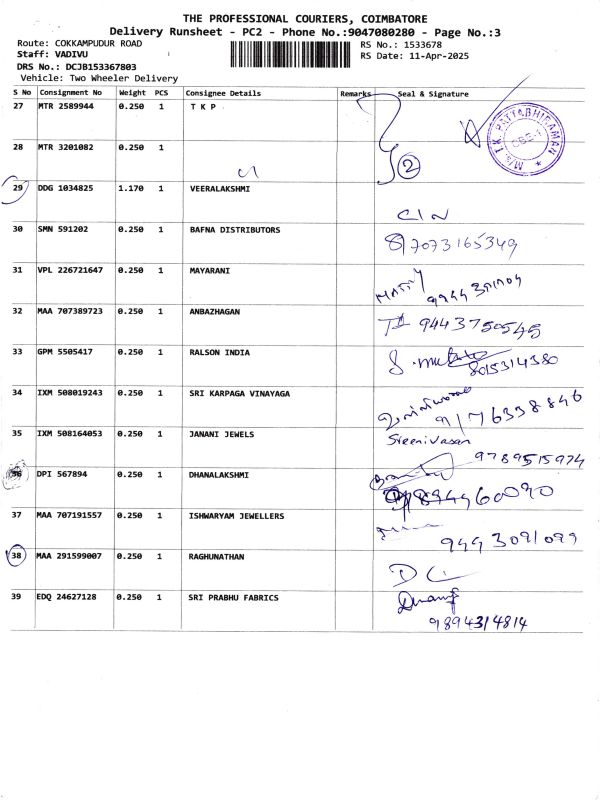 THE PROFESSIONAL COURIERS, COIMBATORE
Delivery Runsheet - PC2 - Phone No.:9047080280 - Page No.:3
Route: COKKAMPUDUR ROAD
Staff: VADIVU
DRS No.: DCJB153367803
Vehicle: Two Wheeler Delivery
RS No.: 1533678
RS Date: 11-Apr-2025
S No Consignment No Weight PCS Consignee Details Remarks Seal & Signature
27 MTR 2589944 0.250 1 T K P
M/s. T.K. PATTABHIRAMAN
CBE-1
28 MTR 3201082 0.250 1
2
29 DDG 1034825 1.170 1 VEERALAKSHMI
30 SMN 591202 0.250 1 BAFNA DISTRIBUTORS
7073165349
31 VPL 226721647 0.250 1 MAYARANI
32 MAA 707389723 0.250 1 ANBAZHAGAN
9443750545
33 GPM 5505417 0.250 1 RALSON INDIA
8015314380
34 IXM 508019243 0.250 1 SRI KARPAGA VINAYAGA
9176338846
35 IXM 508164053 0.250 1 JANANI JEWELS
Sreenivasan
9789515974
36 DPI 567894 0.250 1 DHANALAKSHMI
37 MAA 707191557 0.250 1 ISHWARYAM JEWELLERS
9443091099
38 MAA 291599007 0.250 1 RAGHUNATHAN
39 EDQ 24627128 0.250 1 SRI PRABHU FABRICS
9894314814